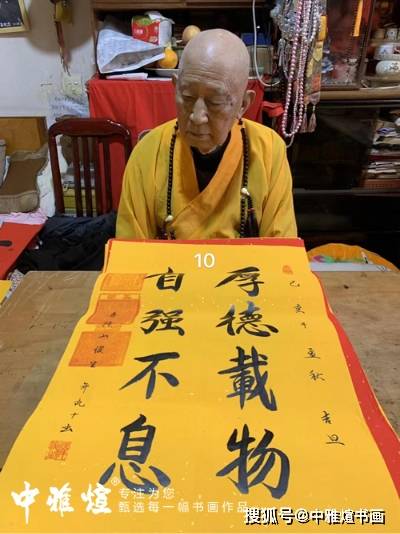 10
己亥 秋 吉旦
厚德載物
自强不息
中雅煊®
专注为您
甄选每一幅书画作品
搜狐号@中雅煊书画